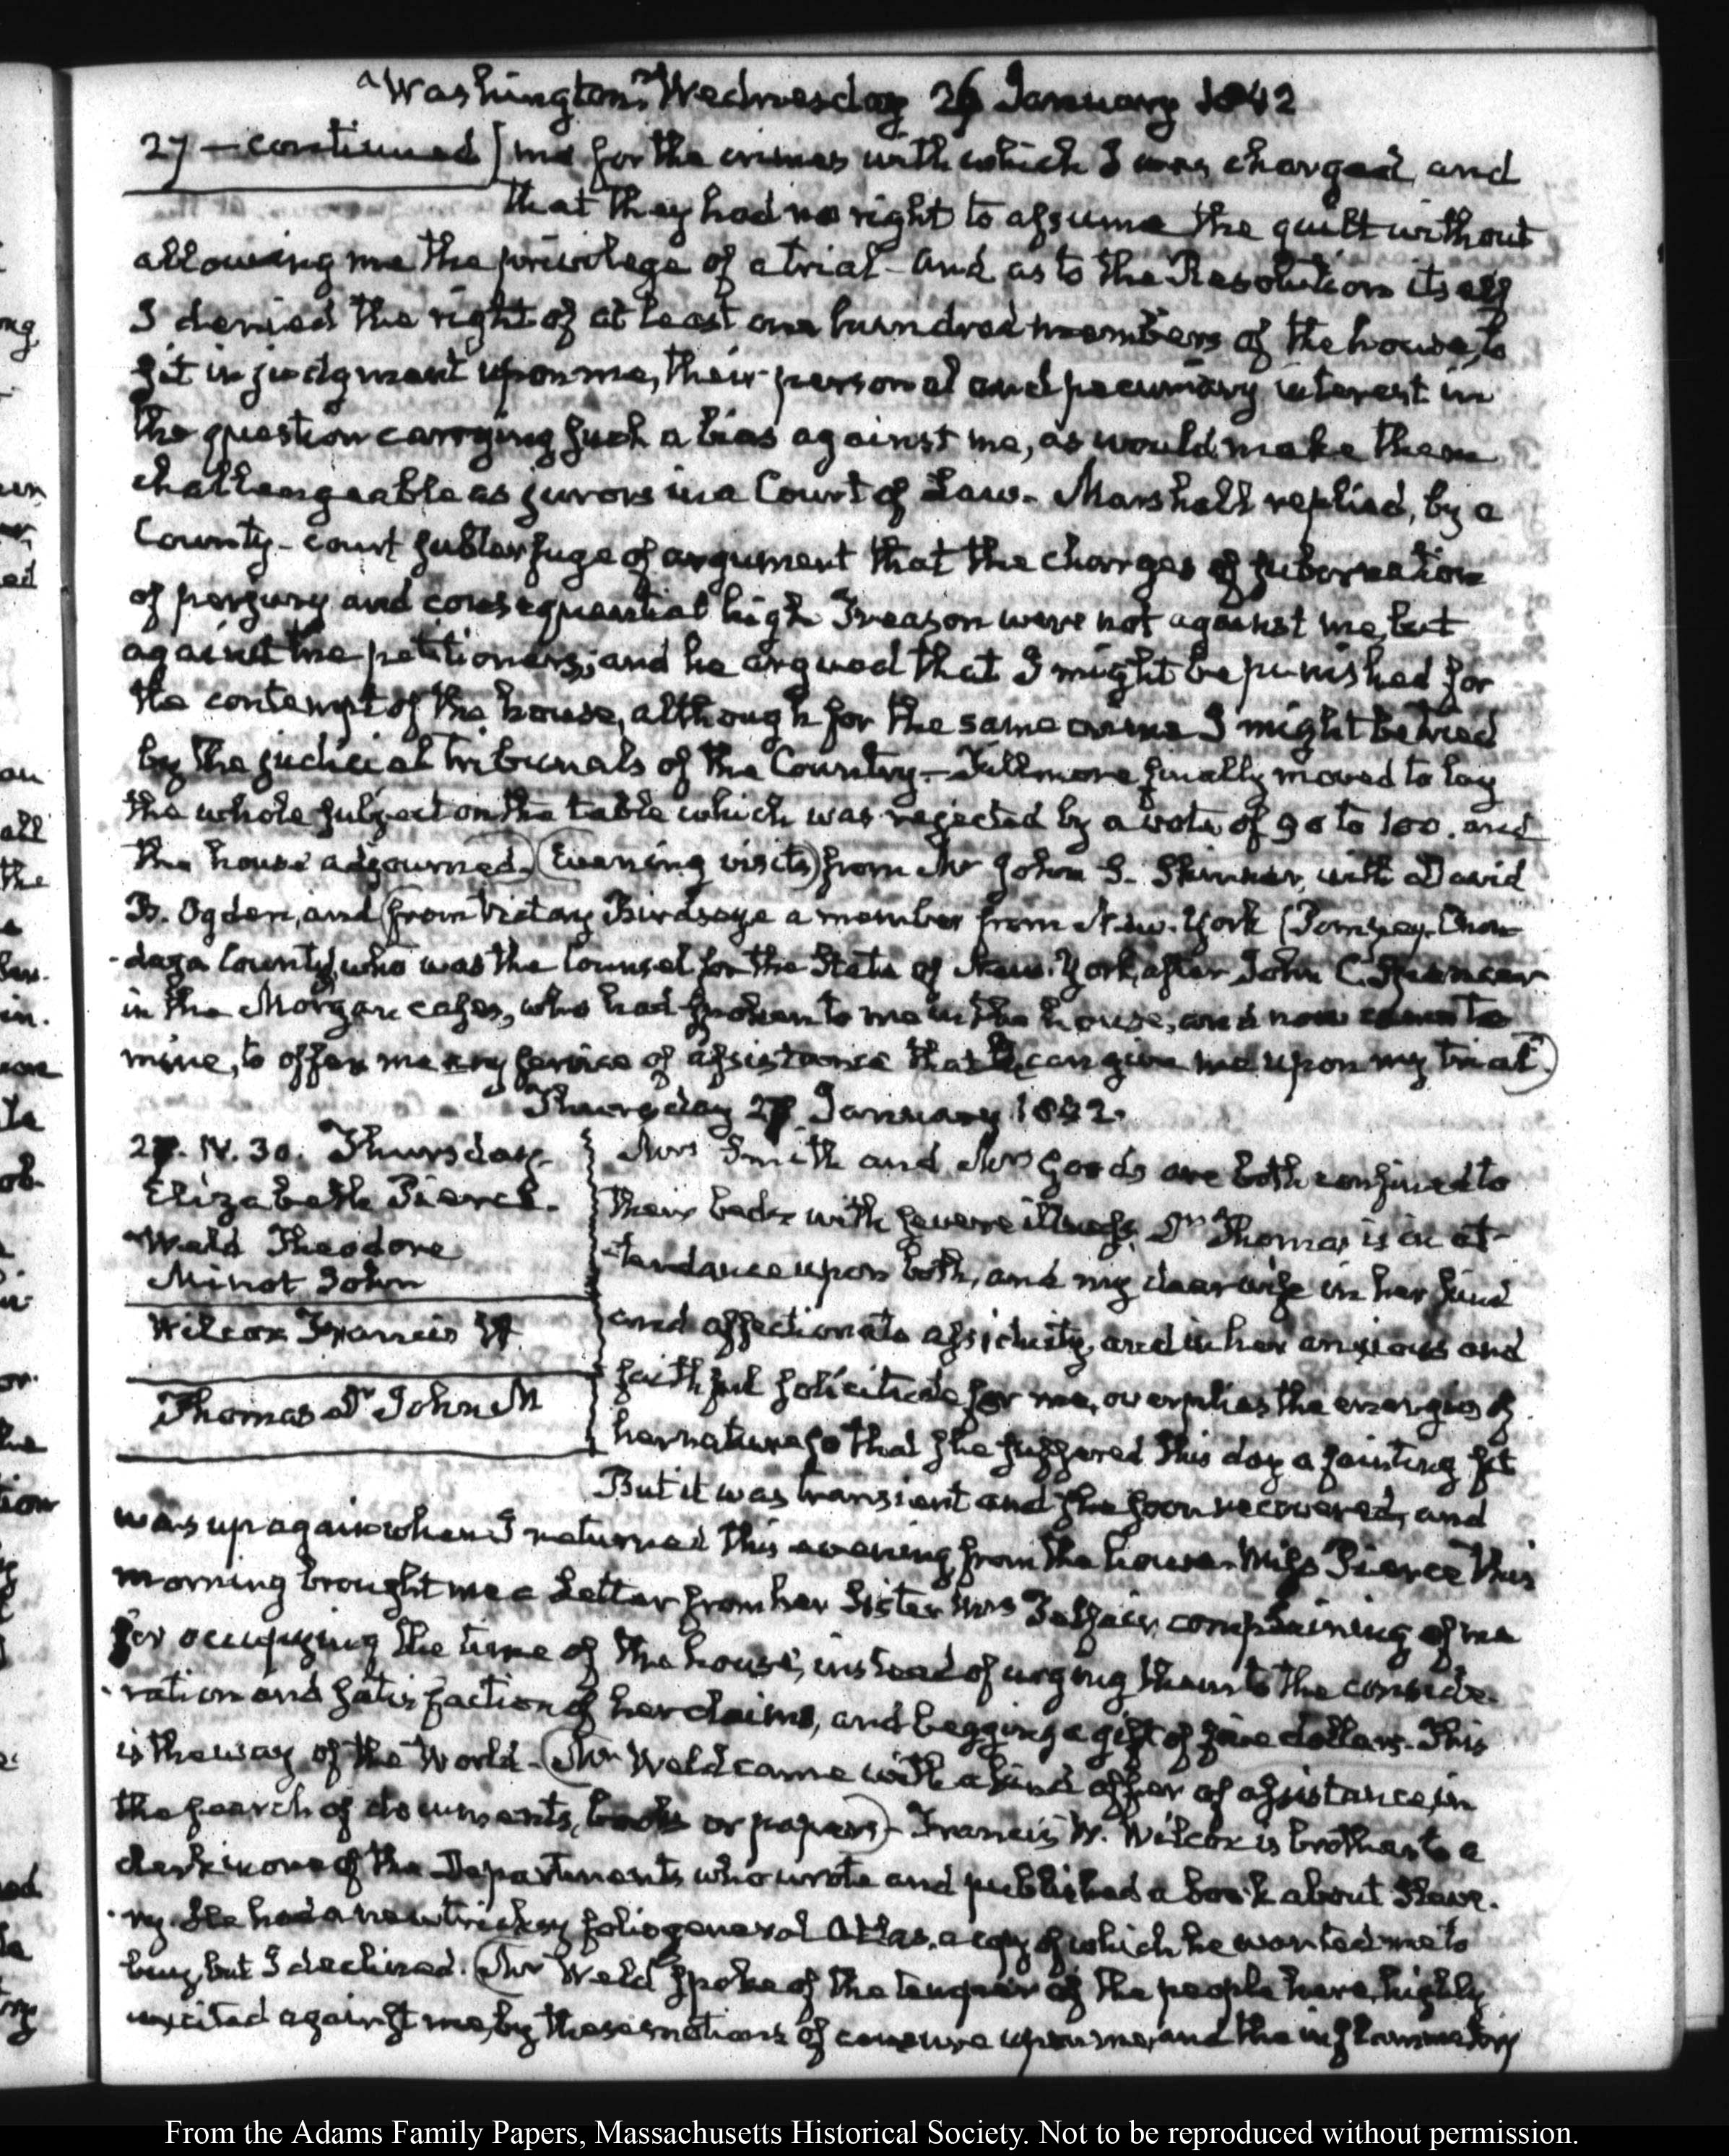 Washington Wednesday 26 January 1842
27 — continued] me for the crimes with which I was charged, and
that they had no right to assume the guilt without
allowing me the privilege of a trial - and as to the Resolution itself
I denied the right of at least one hundred members of the house, to
sit in judgment upon me, their personal and pecuniary interest in
the question carrying such a bias against me, as would make them
challengeable as jurors in a Court of Law - Marshall replied, by a
County-court subterfuge of argument that the charges of subornation
of perjury and consequential high Treason were not against me, but
against the petitioners; and he argued that I might be punished for
the contempt of the house, although for the same crime I might be tried
by the judicial tribunals of the Country - Fillmore finally moved to lay
the whole subject on the table which was rejected by a vote of 90 to 100. and
the house adjourned. (Evening visits) from Mr John S. Skinner, with David
B. Ogden, and (from Victory Birdseye a member from New-York (Pompey, Onon-
-daga County) who was the Counsel for the State of New-York, after John C. Spencer
in the Morgan cases, who had spoken to me in the house, and now came to
mine, to offer me any service of assistance that he can give me upon my trial.)
Thursday 27 January 1842.
27. IV. 30. Thursday
Elizabeth Pierce.
Weld Theodore
Minot John
Wilcox Francis W
Thomas Dr John M
Mrs Smith and Mrs Goods are both confined to
their beds with severe illness. Dr Thomas is in at-
-tendance upon both, and my dear wife in her kind
and affectionate assiduity, and in her anxious and
faithful solicitude for me, overplies the energies of
her nature so that she suffered this day a fainting fit
But it was transient and she soon recovered, and
was up again when I returned this evening from the house. Miss Pierce this
morning brought me a Letter from her Sister Mrs complaining of me
for occupying the time of the house, instead of urging them to the conside-
-ration and satisfaction of her claims, and begging a gift of five dollars. This
is the way of the World - (Mr Weld came with a kind offer of assistance, in
the search of documents, books or papers) - Francis W. Wilcox is brother to a
clerk in one of the Departments who wrote and published a book about Slave-
-ry. He had a new folio general Atlas, a copy of which he wanted me to
buy, but I declined. (Mr Weld spoke of the temper of the people here, highly
excited against me, by these motions of censure upon me, and the inflammatory
From the Adams Family Papers, Massachusetts Historical Society. Not to be reproduced without permission.